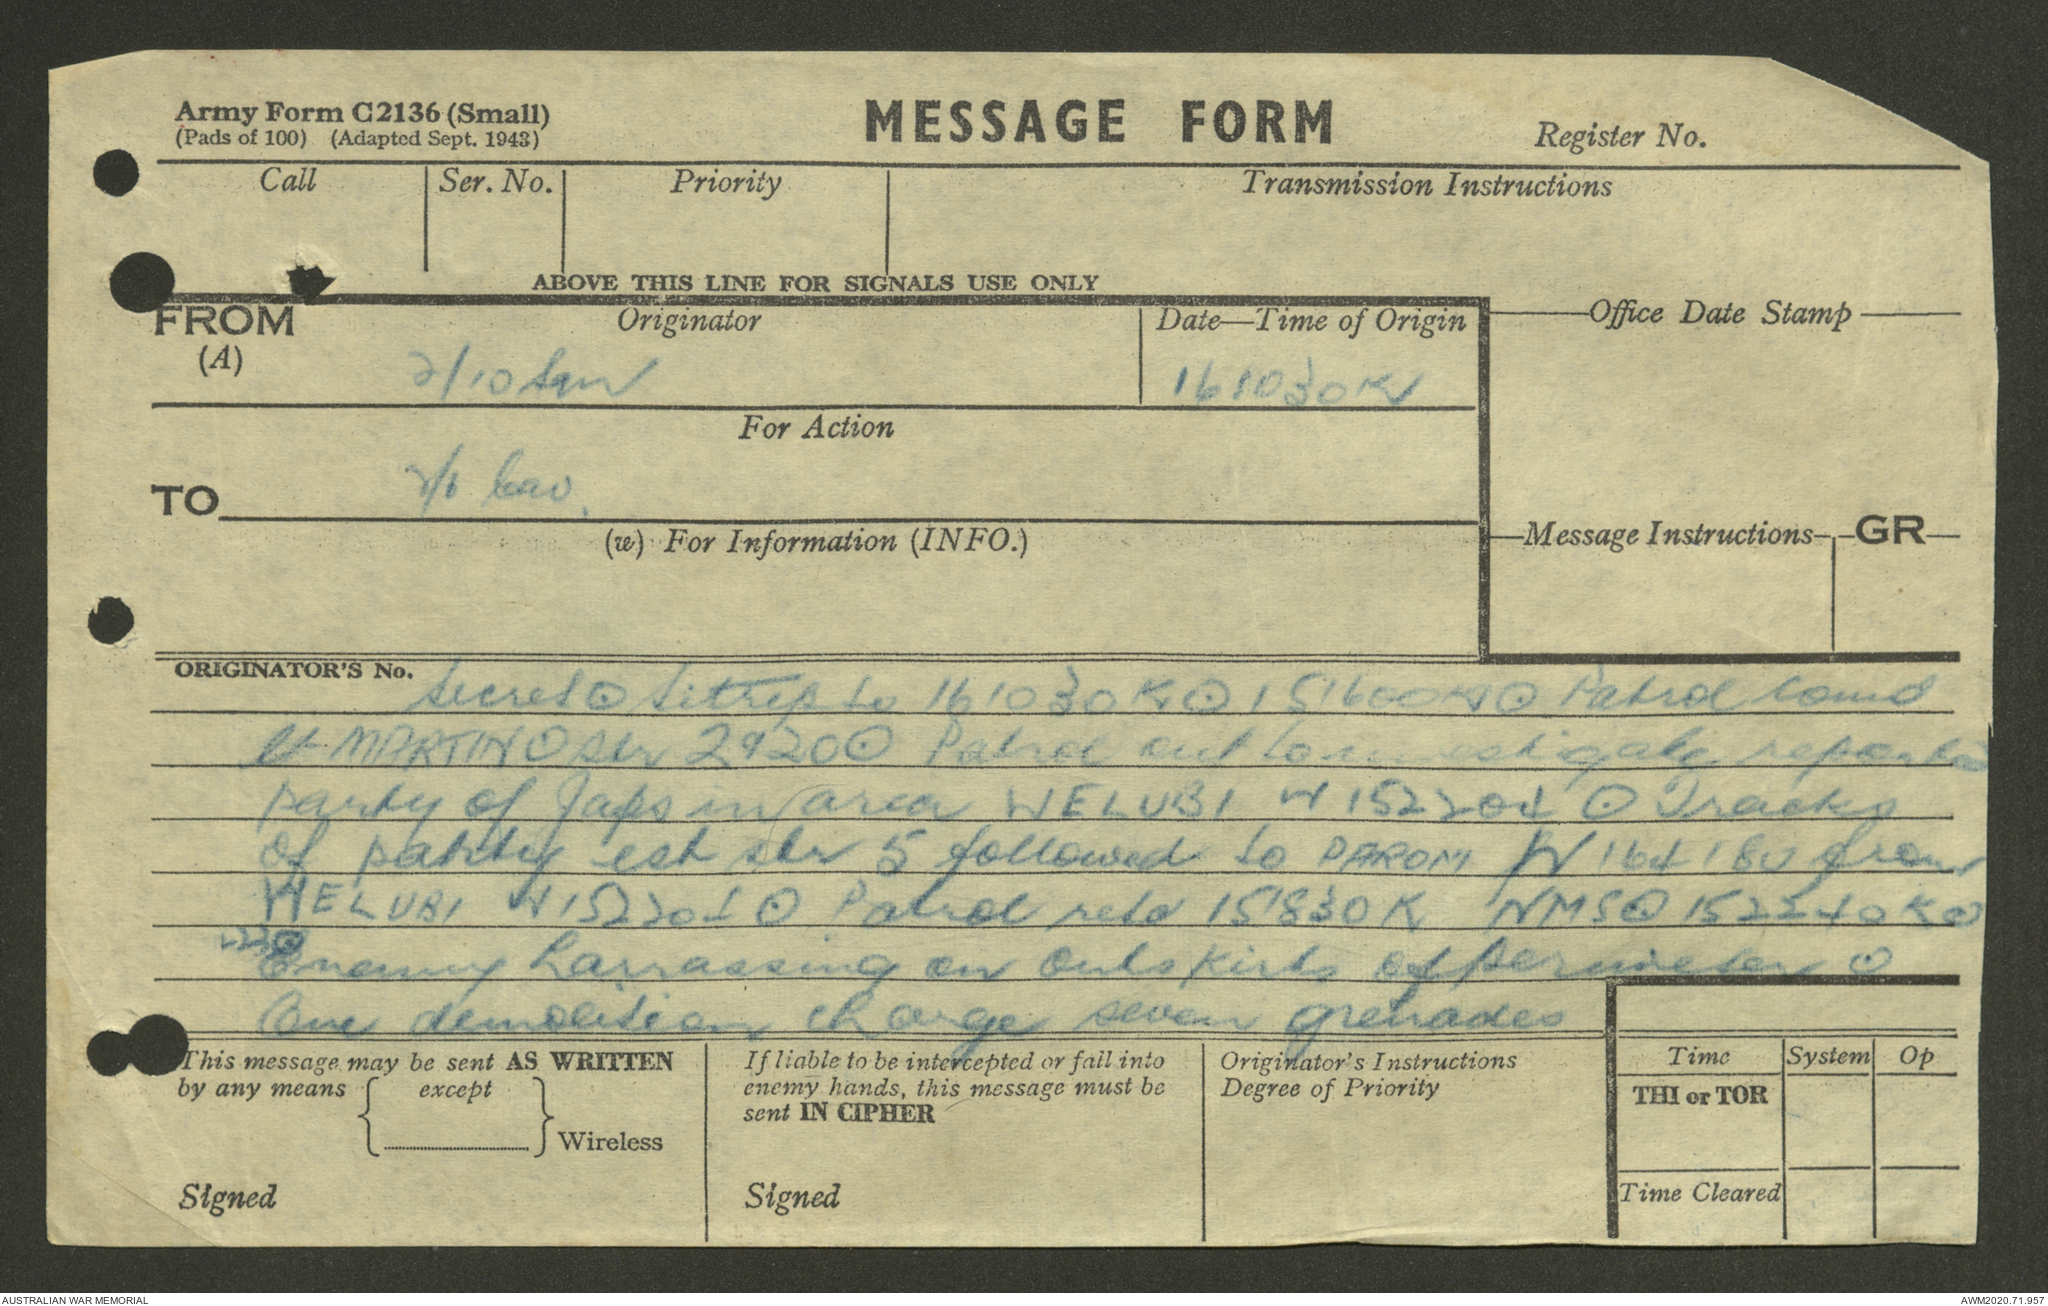 Army Form C2136 (Small)
(Pads of 100) (Adapted Sept. 1943)
MESSAGE FORM
Register No.
Call
Ser. No.
Priority
Transmission Instructions
ABOVE THIS LINE FOR SIGNALS USE ONLY
FROM
(A)
Originator
2/10
Date—Time of Origin
161030K
Office Date Stamp
For Action
TO
Cav.
(w) For Information (INFO.)
Message Instructions
GR
ORIGINATOR'S No.
Secret ⊙ Sitrep to 161030K ⊙ 151600K ⊙ Patrol Comd
Lt MARTIN ⊙ Str ⊙ Patrol out to investigate reported
party of Japs in area WELUBI W 152204 ⊙ Tracks
of patrty est str 5 followed to PAROMI W from
WELUBI W 152204 ⊙ Patrol retd 151830K NMS ⊙ K ⊙
Enemy harrassing on outskirts of perimeter ⊙
One demolition charge seven grenades
This message may be sent AS WRITTEN
by any means { except } Wireless
Signed
If liable to be intercepted or fall into
enemy hands, this message must be
sent IN CIPHER
Signed
Originator's Instructions
Degree of Priority
Time
System
Op
THI or TOR
Time Cleared
AUSTRALIAN WAR MEMORIAL
AWM2020.71.957